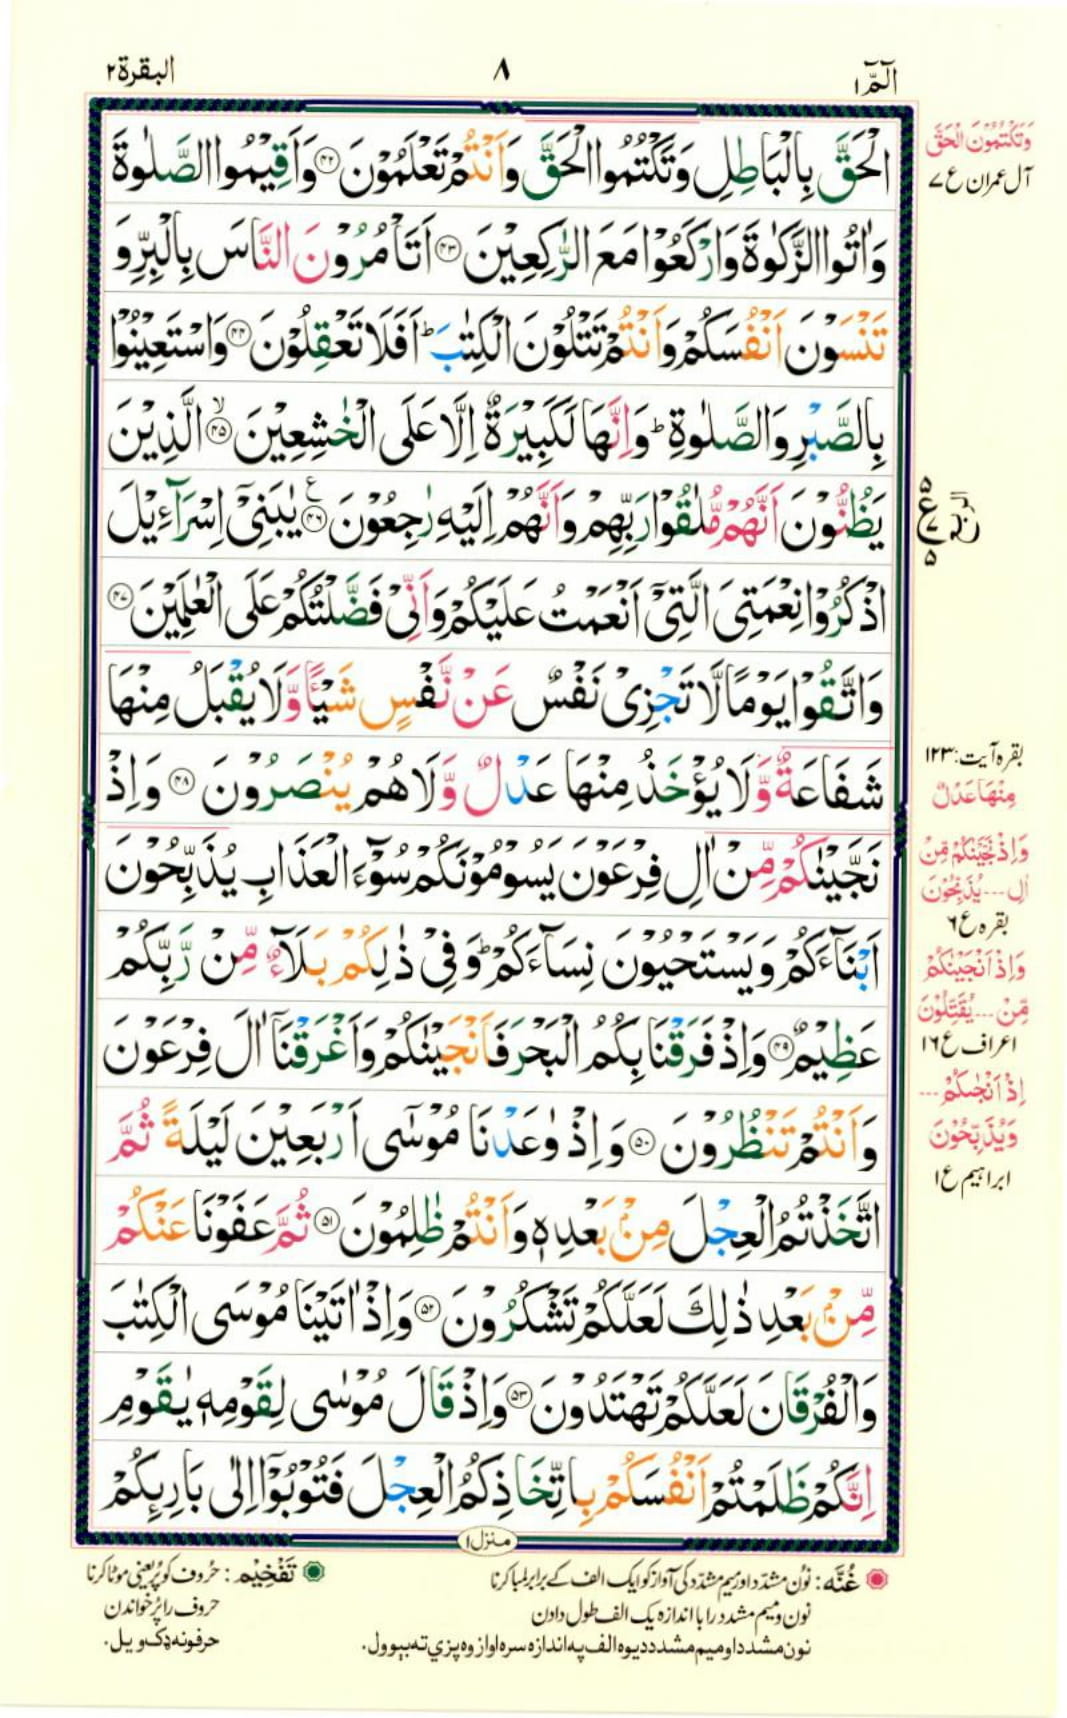 الٓمّٓ ١
٨
البقرة ٢
الْحَقَّ بِالْبَاطِلِ وَتَكْتُمُوا الْحَقَّ وَاَنْتُمْ تَعْلَمُوْنَ ﴿۴۲﴾ وَاَقِيْمُوا الصَّلٰوةَ
وَاٰتُوا الزَّكٰوةَ وَارْكَعُوْا مَعَ الرّٰكِعِيْنَ ﴿۴۳﴾ اَتَاْمُرُوْنَ النَّاسَ بِالْبِرِّ وَ
تَنْسَوْنَ اَنْفُسَكُمْ وَاَنْتُمْ تَتْلُوْنَ الْكِتٰبَ ؕ اَفَلَا تَعْقِلُوْنَ ﴿۴۴﴾ وَاسْتَعِيْنُوْا
بِالصَّبْرِ وَالصَّلٰوةِ ؕ وَاِنَّهَا لَكَبِيْرَةٌ اِلَّا عَلَى الْخٰشِعِيْنَ ﴿۴۵﴾ۙ الَّذِيْنَ
يَظُنُّوْنَ اَنَّهُمْ مُّلٰقُوْا رَبِّهِمْ وَاَنَّهُمْ اِلَيْهِ رٰجِعُوْنَ ﴿۴۶﴾ ع يٰبَنِيْۤ اِسْرَآءِيْلَ
اذْكُرُوْا نِعْمَتِيَ الَّتِيْۤ اَنْعَمْتُ عَلَيْكُمْ وَاَنِّيْ فَضَّلْتُكُمْ عَلَى الْعٰلَمِيْنَ ﴿۴۷﴾
وَاتَّقُوْا يَوْمًا لَّا تَجْزِيْ نَفْسٌ عَنْ نَّفْسٍ شَيْـًٔا وَّلَا يُقْبَلُ مِنْهَا
شَفَاعَةٌ وَّلَا يُؤْخَذُ مِنْهَا عَدْلٌ وَّلَا هُمْ يُنْصَرُوْنَ ﴿۴۸﴾ وَاِذْ
نَجَّيْنٰكُمْ مِّنْ اٰلِ فِرْعَوْنَ يَسُوْمُوْنَكُمْ سُوْٓءَ الْعَذَابِ يُذَبِّحُوْنَ
اَبْنَآءَكُمْ وَيَسْتَحْيُوْنَ نِسَآءَكُمْ ؕ وَفِيْ ذٰلِكُمْ بَلَآءٌ مِّنْ رَّبِّكُمْ
عَظِيْمٌ ﴿۴۹﴾ وَاِذْ فَرَقْنَا بِكُمُ الْبَحْرَ فَاَنْجَيْنٰكُمْ وَاَغْرَقْنَاۤ اٰلَ فِرْعَوْنَ
وَاَنْتُمْ تَنْظُرُوْنَ ﴿۵۰﴾ وَاِذْ وٰعَدْنَا مُوْسٰٓى اَرْبَعِيْنَ لَيْلَةً ثُمَّ
اتَّخَذْتُمُ الْعِجْلَ مِنْۢ بَعْدِهٖ وَاَنْتُمْ ظٰلِمُوْنَ ﴿۵۱﴾ ثُمَّ عَفَوْنَا عَنْكُمْ
مِّنْۢ بَعْدِ ذٰلِكَ لَعَلَّكُمْ تَشْكُرُوْنَ ﴿۵۲﴾ وَاِذْ اٰتَيْنَا مُوْسَى الْكِتٰبَ
وَالْفُرْقَانَ لَعَلَّكُمْ تَهْتَدُوْنَ ﴿۵۳﴾ وَاِذْ قَالَ مُوْسٰى لِقَوْمِهٖ يٰقَوْمِ
اِنَّكُمْ ظَلَمْتُمْ اَنْفُسَكُمْ بِاتِّخَاذِكُمُ الْعِجْلَ فَتُوْبُوْۤا اِلٰى بَارِىِٕكُمْ
منزل ١
وَتَكْتُمُوْنَ الْحَقَّ
آل عمران ع ۷
۵
ع
۷
۵
بقرہ آیت: ۱۲۳
مِنْهَا عَدْلٌ
وَاِذْ نَجَّيْنٰكُمْ مِّنْ
اٰلِ ... يُذَبِّحُوْنَ
بقرہ ع ۶
وَاِذْ اَنْجَيْنٰكُمْ
مِّنْ ... يُقَتِّلُوْنَ
اعراف ع ۱۶
اِذْ اَنْجٰىكُمْ ...
وَيُذَبِّحُوْنَ
ابراہیم ع ۱
غُنَّه: نون مشدّد اور میم مشدّد کی آواز کو ایک الف کے برابر لمبا کرنا
نون و میم مشدد را با اندازه یک الف طول دادن
نون مشدد او میم مشدد دیوه الف په اندازه سره اواز وه پزي ته بېوول.
تَفْخِيْم: حُروف کو پُر یعنی موٹا کرنا
حروف را پر خواندن
حرفونه ډک ویل.